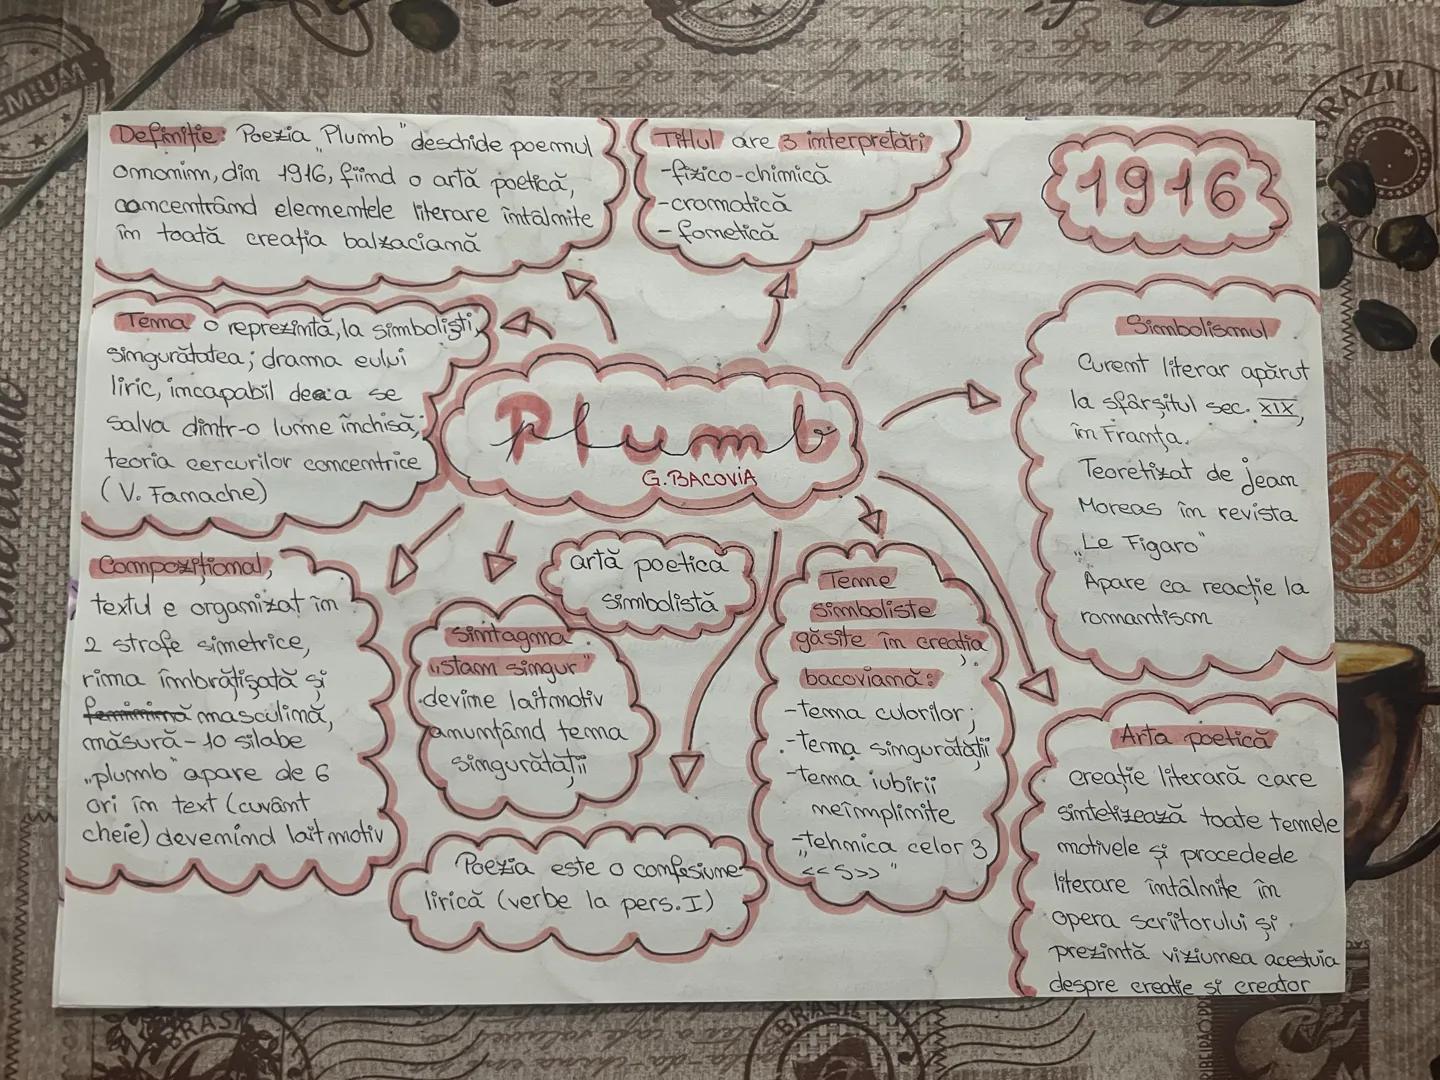 Definiție: Poezia „Plumb" deschide poemul
omonim, din 1916, fiind o artă poetică,
concentrând elementele literare întâlnite
în toată creația balzaciană
Titlul are 3 interpretări
-fizico-chimică
-cromatică
- fonetică
1916
Tema o reprezintă, la simboliști,
singurătatea; drama eului
liric, incapabil de a se
salva dintr-o lume închisă;
teoria cercurilor concentrice
(V. Fanache)
Plumb
G. BACOVIA
Simbolismul
Curent literar apărut
la sfârșitul sec. XIX,
în Franța.
Teoretizat de Jean
Moreas în revista
„Le Figaro"
Apare ca reacție la
romantism
Compozițional,
textul e organizat în
2 strofe simetrice,
rima îmbrățișată și
feminină masculină,
măsură - 10 silabe
„plumb" apare de 6
ori în text (cuvânt
cheie) devenind laitmotiv
Sintagma
„stam singur"
devine laitmotiv
anunțând tema
singurătății
artă poetică
simbolistă
Teme
simboliste
găsite în creația
bacoviană:
-tema culorilor;
-tema singurătății
-tema iubirii
neîmplinite
-„tehnica celor 3
<<S>> "
Arta poetică
creație literară care
sintetizează toate temele
motivele și procedeele
literare întâlnite în
opera scriitorului și
prezintă viziunea acestuia
despre creație și creator
Poezia este o confesiune
lirică (verbe la pers. I)
BRAZIL